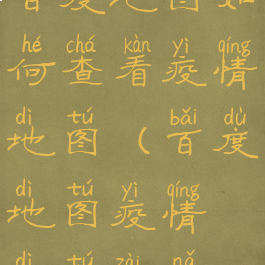 hé chá kàn yì qíng
何查看疫情
dì tú bǎi dù
地图（百度
dì tú yì qíng
地图疫情
dì tú zài nǎ